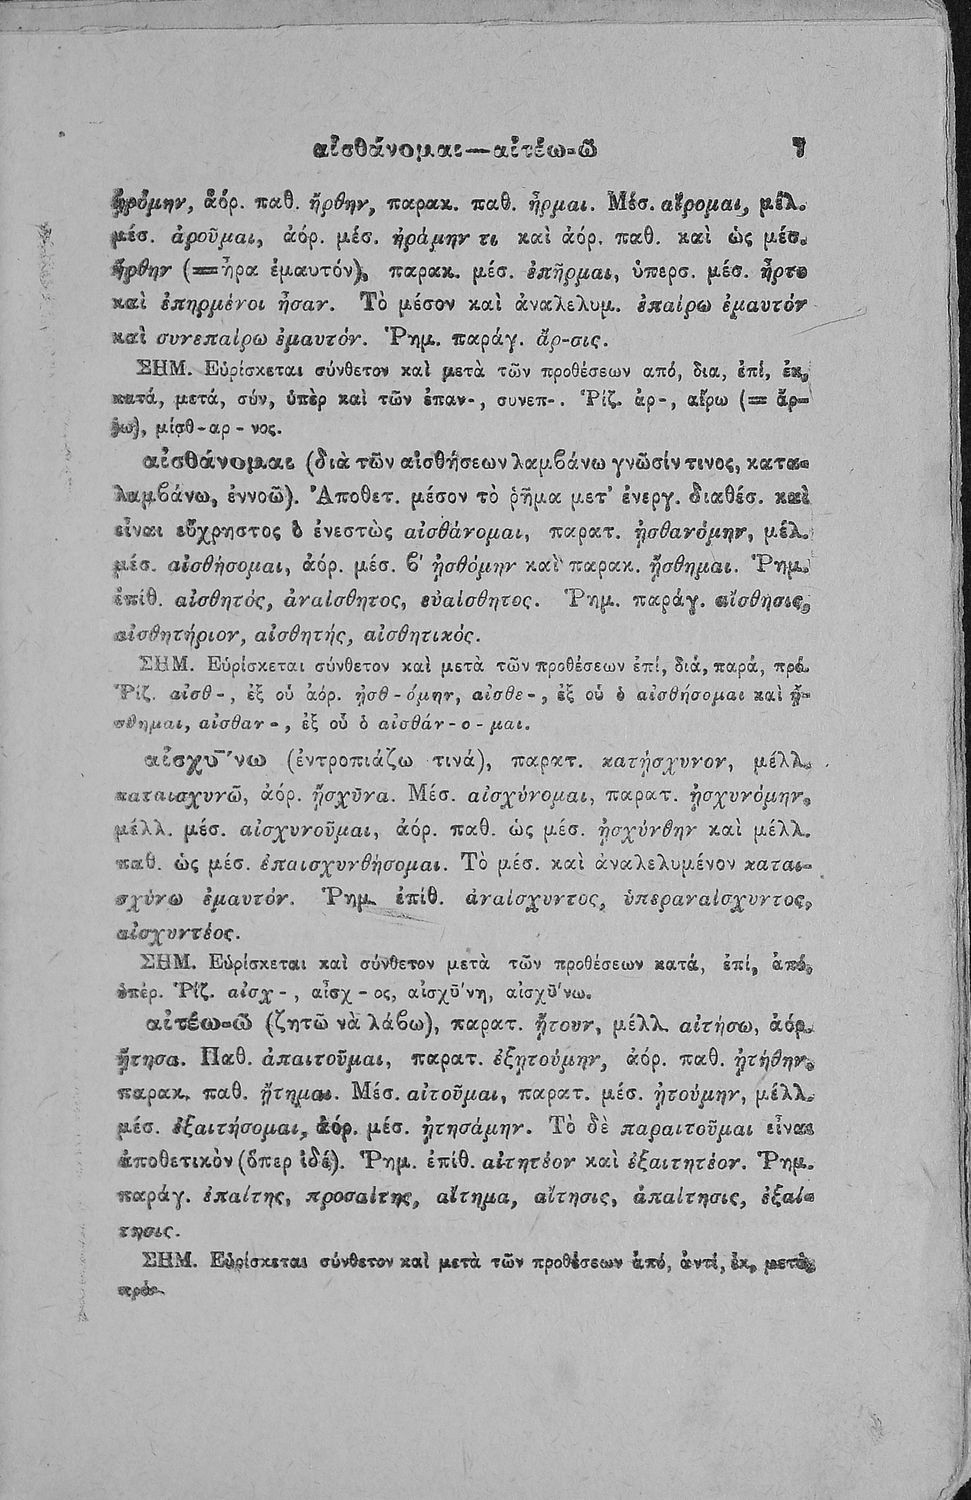 αἰσθάνομαι—αἰτέω-ῶ 7
ᾐρόμην, ἀόρ. παθ. ἤρθην, παρακ. παθ. ἦρμαι. Μέσ. αἴρομαι, μέλ.
μέσ. ἀροῦμαι, ἀόρ. μέσ. ἠράμην τι καὶ ἀόρ. παθ. καὶ ὡς μέσ.
ἤρθην (=ἦρα ἐμαυτόν), παρακ. μέσ. ἐπῆρμαι, ὑπερσ. μέσ. ἦρτο
καὶ ἐπηρμένοι ἦσαν. Τὸ μέσον καὶ ἀναλελυμ. ἐπαίρω ἐμαυτόν
καὶ συνεπαίρω ἐμαυτόν. Ῥημ. παράγ. ἄρ-σις.
ΣΗΜ. Εὑρίσκεται σύνθετον καὶ μετὰ τῶν προθέσεων από, δια, ἐπί, ἐκ,
κατά, μετά, σύν, ὑπὲρ καὶ τῶν ἐπαν-, συνεπ-. Ῥίζ. ἀρ-, αἴρω (= ἄρ-
jω), μίσθ-αρ-νος.
αἰσθάνομαι (διὰ τῶν αἰσθήσεων λαμβάνω γνῶσίν τινος, κατα-
λαμβάνω, ἐννοῶ). Ἀποθετ. μέσον τὸ ῥῆμα μετ' ἐνεργ. διαθέσ. καὶ
εἶναι εὔχρηστος ὁ ἐνεστὼς αἰσθάνομαι, παρατ. ᾐσθανόμην, μέλ.
μέσ. αἰσθήσομαι, ἀόρ. μέσ. β' ᾐσθόμην καὶ παρακ. ᾔσθημαι. Ῥημ.
ἐπίθ. αἰσθητός, ἀναίσθητος, εὐαίσθητος. Ῥημ. παράγ. αἴσθησις,
αἰσθητήριον, αἰσθητής, αἰσθητικός.
ΣΗΜ. Εὑρίσκεται σύνθετον καὶ μετὰ τῶν προθέσεων ἐπί, διά, παρά, πρό.
Ῥίζ. αἰσθ-, ἐξ οὗ ἀόρ. ᾐσθ-όμην, αἰσθε-, ἐξ οὗ ὁ αἰσθήσομαι καὶ ᾔ-
σθημαι, αἰσθαν-, ἐξ οὗ ὁ αἰσθάν-ο-μαι.
αἰσχῡ́νω (ἐντροπιάζω τινά), παρατ. κατῄσχυνον, μέλλ.
καταισχυνῶ, ἀόρ. ᾔσχῡνα. Μέσ. αἰσχύνομαι, παρατ. ᾐσχυνόμην,
μέλλ. μέσ. αἰσχυνοῦμαι, ἀόρ. παθ. ὡς μέσ. ᾐσχύνθην καὶ μέλλ.
παθ. ὡς μέσ. ἐπαισχυνθήσομαι. Τὸ μέσ. καὶ ἀναλελυμένον καται-
σχύνω ἐμαυτόν. Ῥημ. ἐπίθ. ἀναίσχυντος, ὑπεραναίσχυντος,
αἰσχυντέος.
ΣΗΜ. Εὑρίσκεται καὶ σύνθετον μετὰ τῶν προθέσεων κατά, ἐπί, ἀπό,
ὑπέρ. Ῥίζ. αἰσχ-, αἶσχ-ος, αἰσχῡ́νη, αἰσχῡ́νω.
αἰτέω-ῶ (ζητῶ νὰ λάβω), παρατ. ᾔτουν, μέλλ. αἰτήσω, ἀόρ.
ᾔτησα. Παθ. ἀπαιτοῦμαι, παρατ. ἐξῃτούμην, ἀόρ. παθ. ᾐτήθην,
παρακ. παθ. ᾔτημαι. Μέσ. αἰτοῦμαι, παρατ. μέσ. ᾐτούμην, μέλλ.
μέσ. ἐξαιτήσομαι, ἀόρ. μέσ. ᾐτησάμην. Τὸ δὲ παραιτοῦμαι εἶναι
ἀποθετικὸν (ὅπερ ἰδέ). Ῥημ. ἐπίθ. αἰτητέον καὶ ἐξαιτητέον. Ῥημ.
παράγ. ἐπαίτης, προσαίτης, αἴτημα, αἴτησις, ἀπαίτησις, ἐξαί-
τησις.
ΣΗΜ. Εὑρίσκεται σύνθετον καὶ μετὰ τῶν προθέσεων ἀπό, ἀντί, ἐκ, μετά,
πρός.